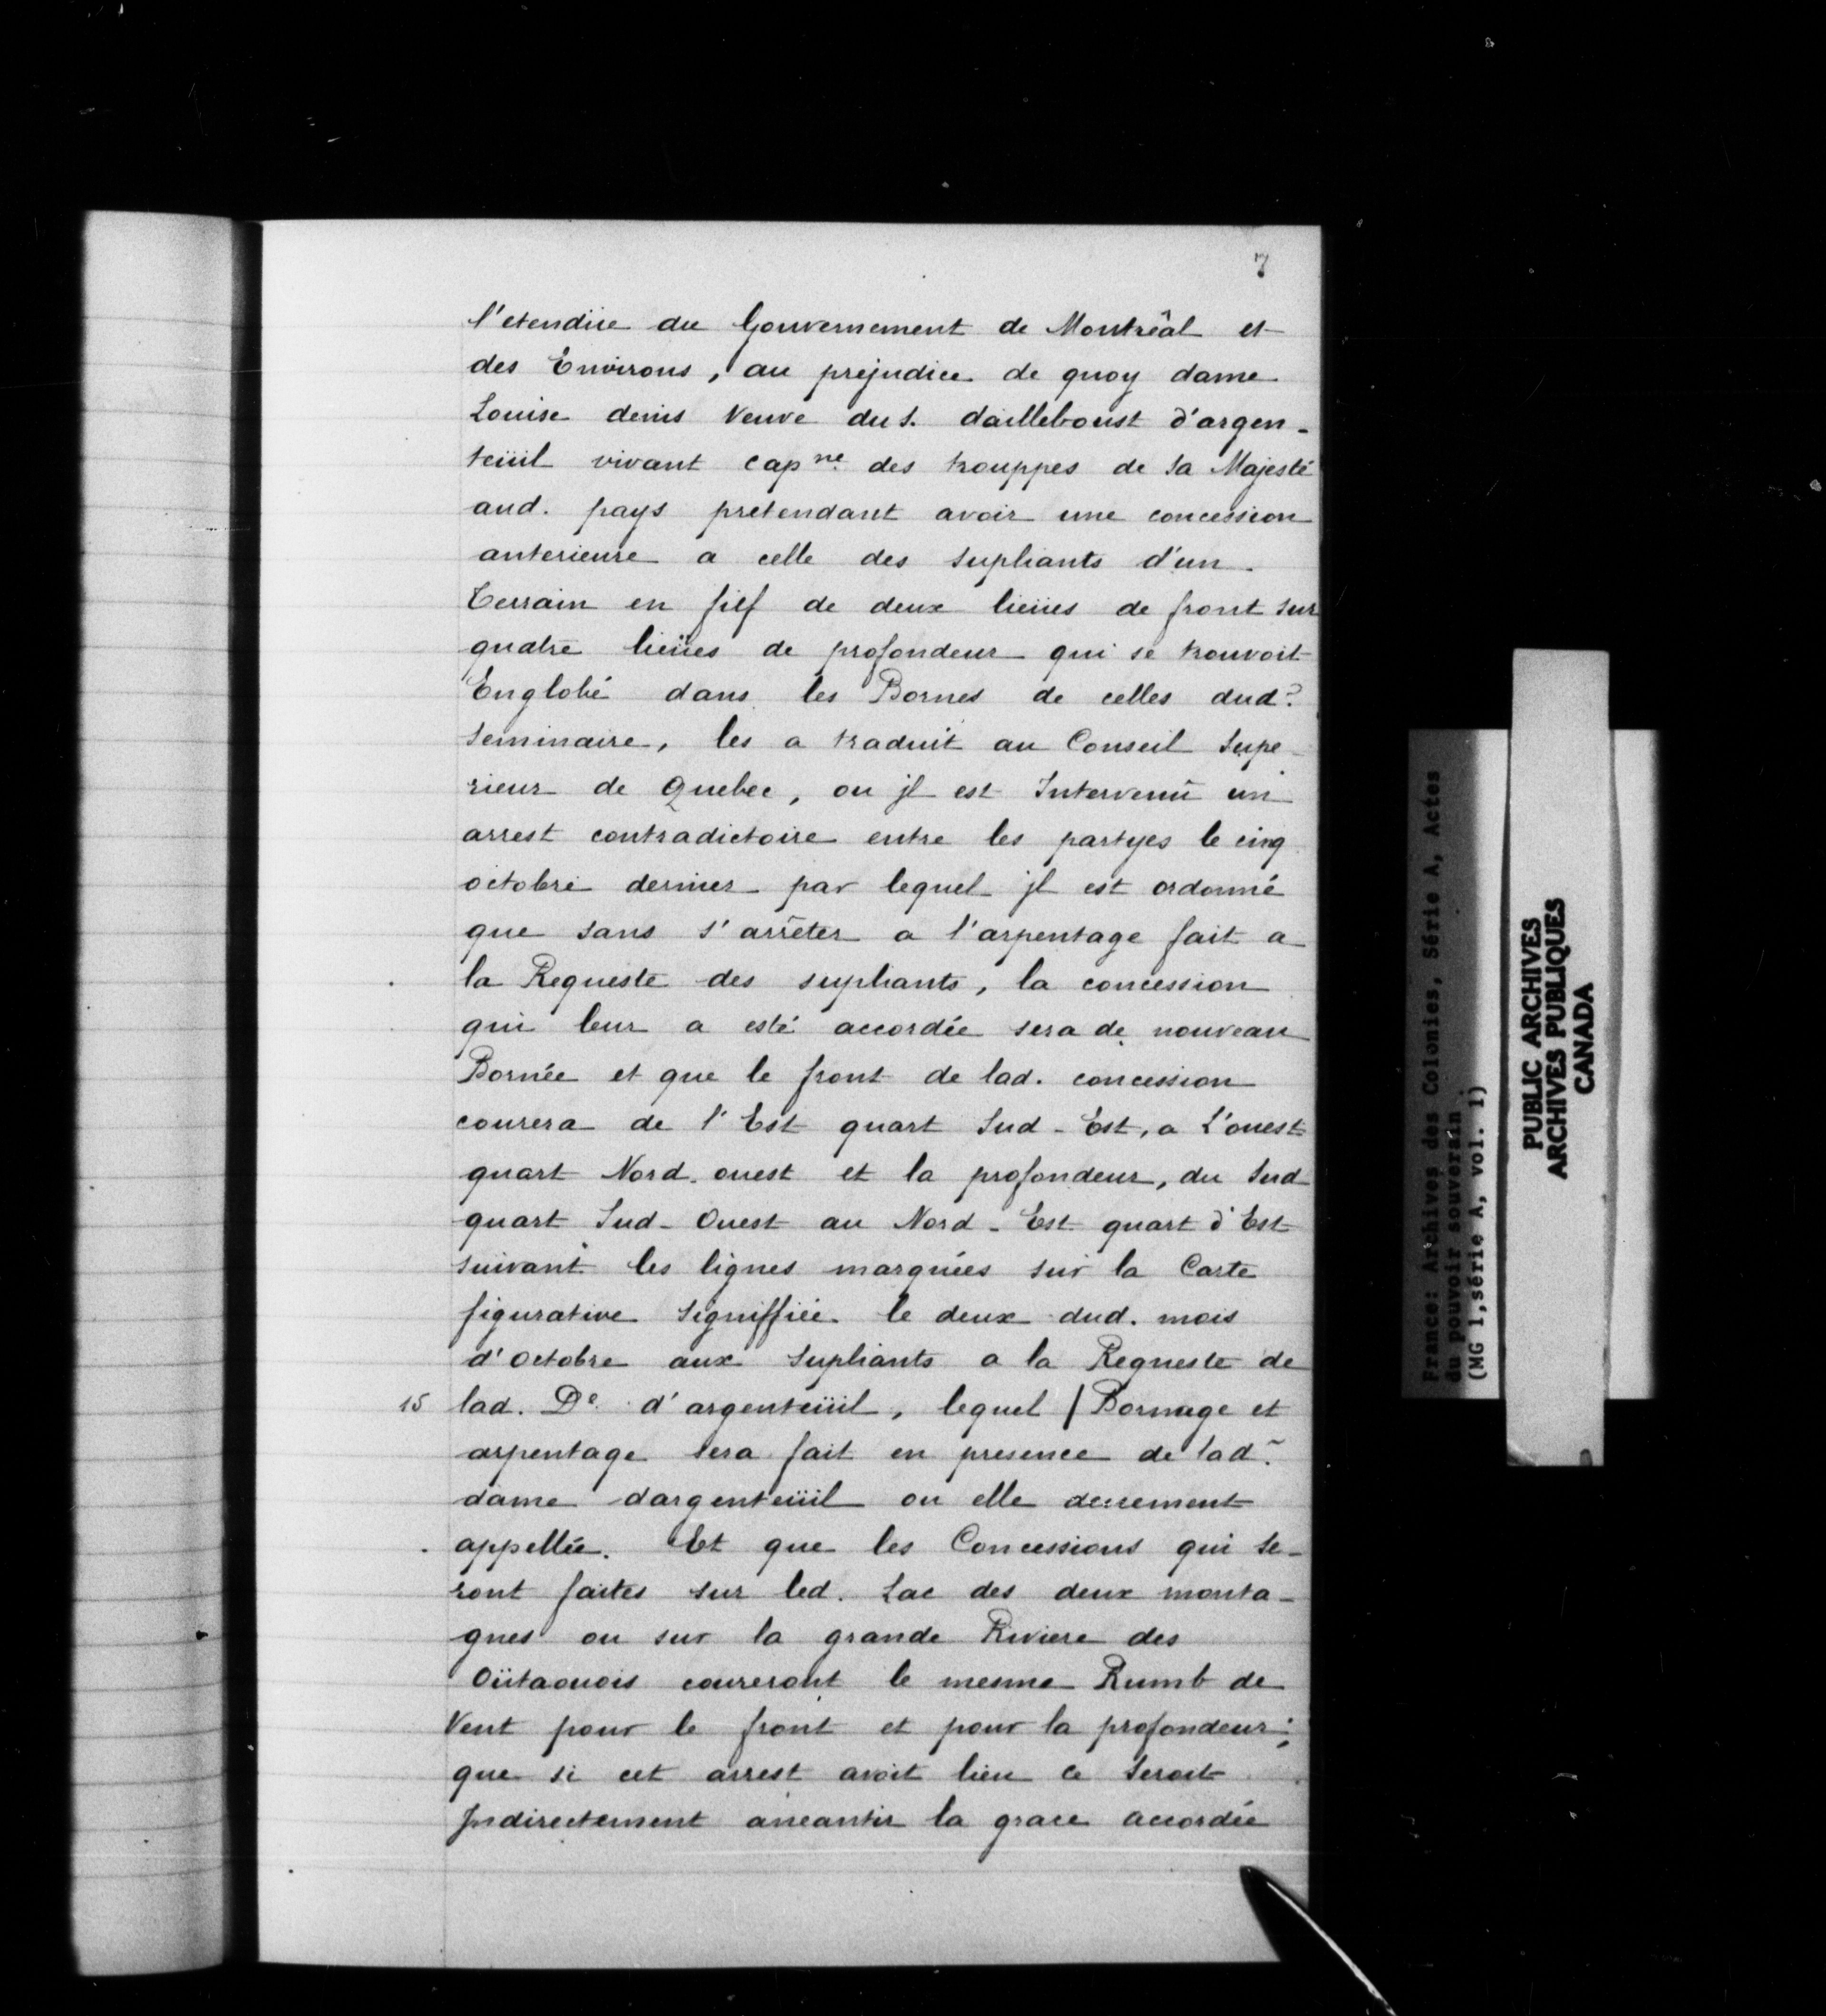 7
l'etendüe du Gouvernement de Montrêal et
des Environs, au prejudice de quoy dame
Louise denis Veuve du S. dailleboust d'argen-
teüil vivant capne. des trouppes de Sa Majesté
aud. pays pretendant avoir une concession
anterieure a celle des Supliants d'un
Terrain en fief de deux lieües de front sur
quatre lieües de profondeur qui se trouvoit
Englobé dans les Bornes de celles dud.
Seminaire, les a traduit au Conseil Supe-
rieur de Quebec, ou jl est Intervenû un
arrest contradictoire entre les partyes le cinq
octobre dernier par lequel jl est ordonné
que sans s'arrêter a l'arpentage fait a
la Requeste des supliants, la concession
qui leur a esté accordée sera de nouveau
Bornée et que le front de lad. concession
courera de l'Est quart Sud-Est, a L'ouest
quart Nord-ouest et la profondeur, du Sud
quart Sud-Ouest au Nord-Est quart d'Est
suivant les lignes marquées sur la Carte
figurative Signiffiée le deux dud. mois
d'Octobre aux Supliants a la Requeste de
15 lad. De. d'argenteüil, lequel / Bornage et
arpentage sera fait en presence de lad.
dame dargenteüil ou elle deuement
appellée. Et que les Concessions qui se-
ront faites sur led. Lac des deux monta-
gnes ou sur la grande Riviere des
Oütaouois coureront le mesme Rumb de
Vent pour le front et pour la profondeur;
que si cet arrest avoit lieu ce Seroit
Jndirectement aneantir la grace accordée
France: Archives des Colonies, Série A, Actes
du pouvoir souverain
(MG 1,série A, vol. 1)
PUBLIC ARCHIVES
ARCHIVES PUBLIQUES
CANADA